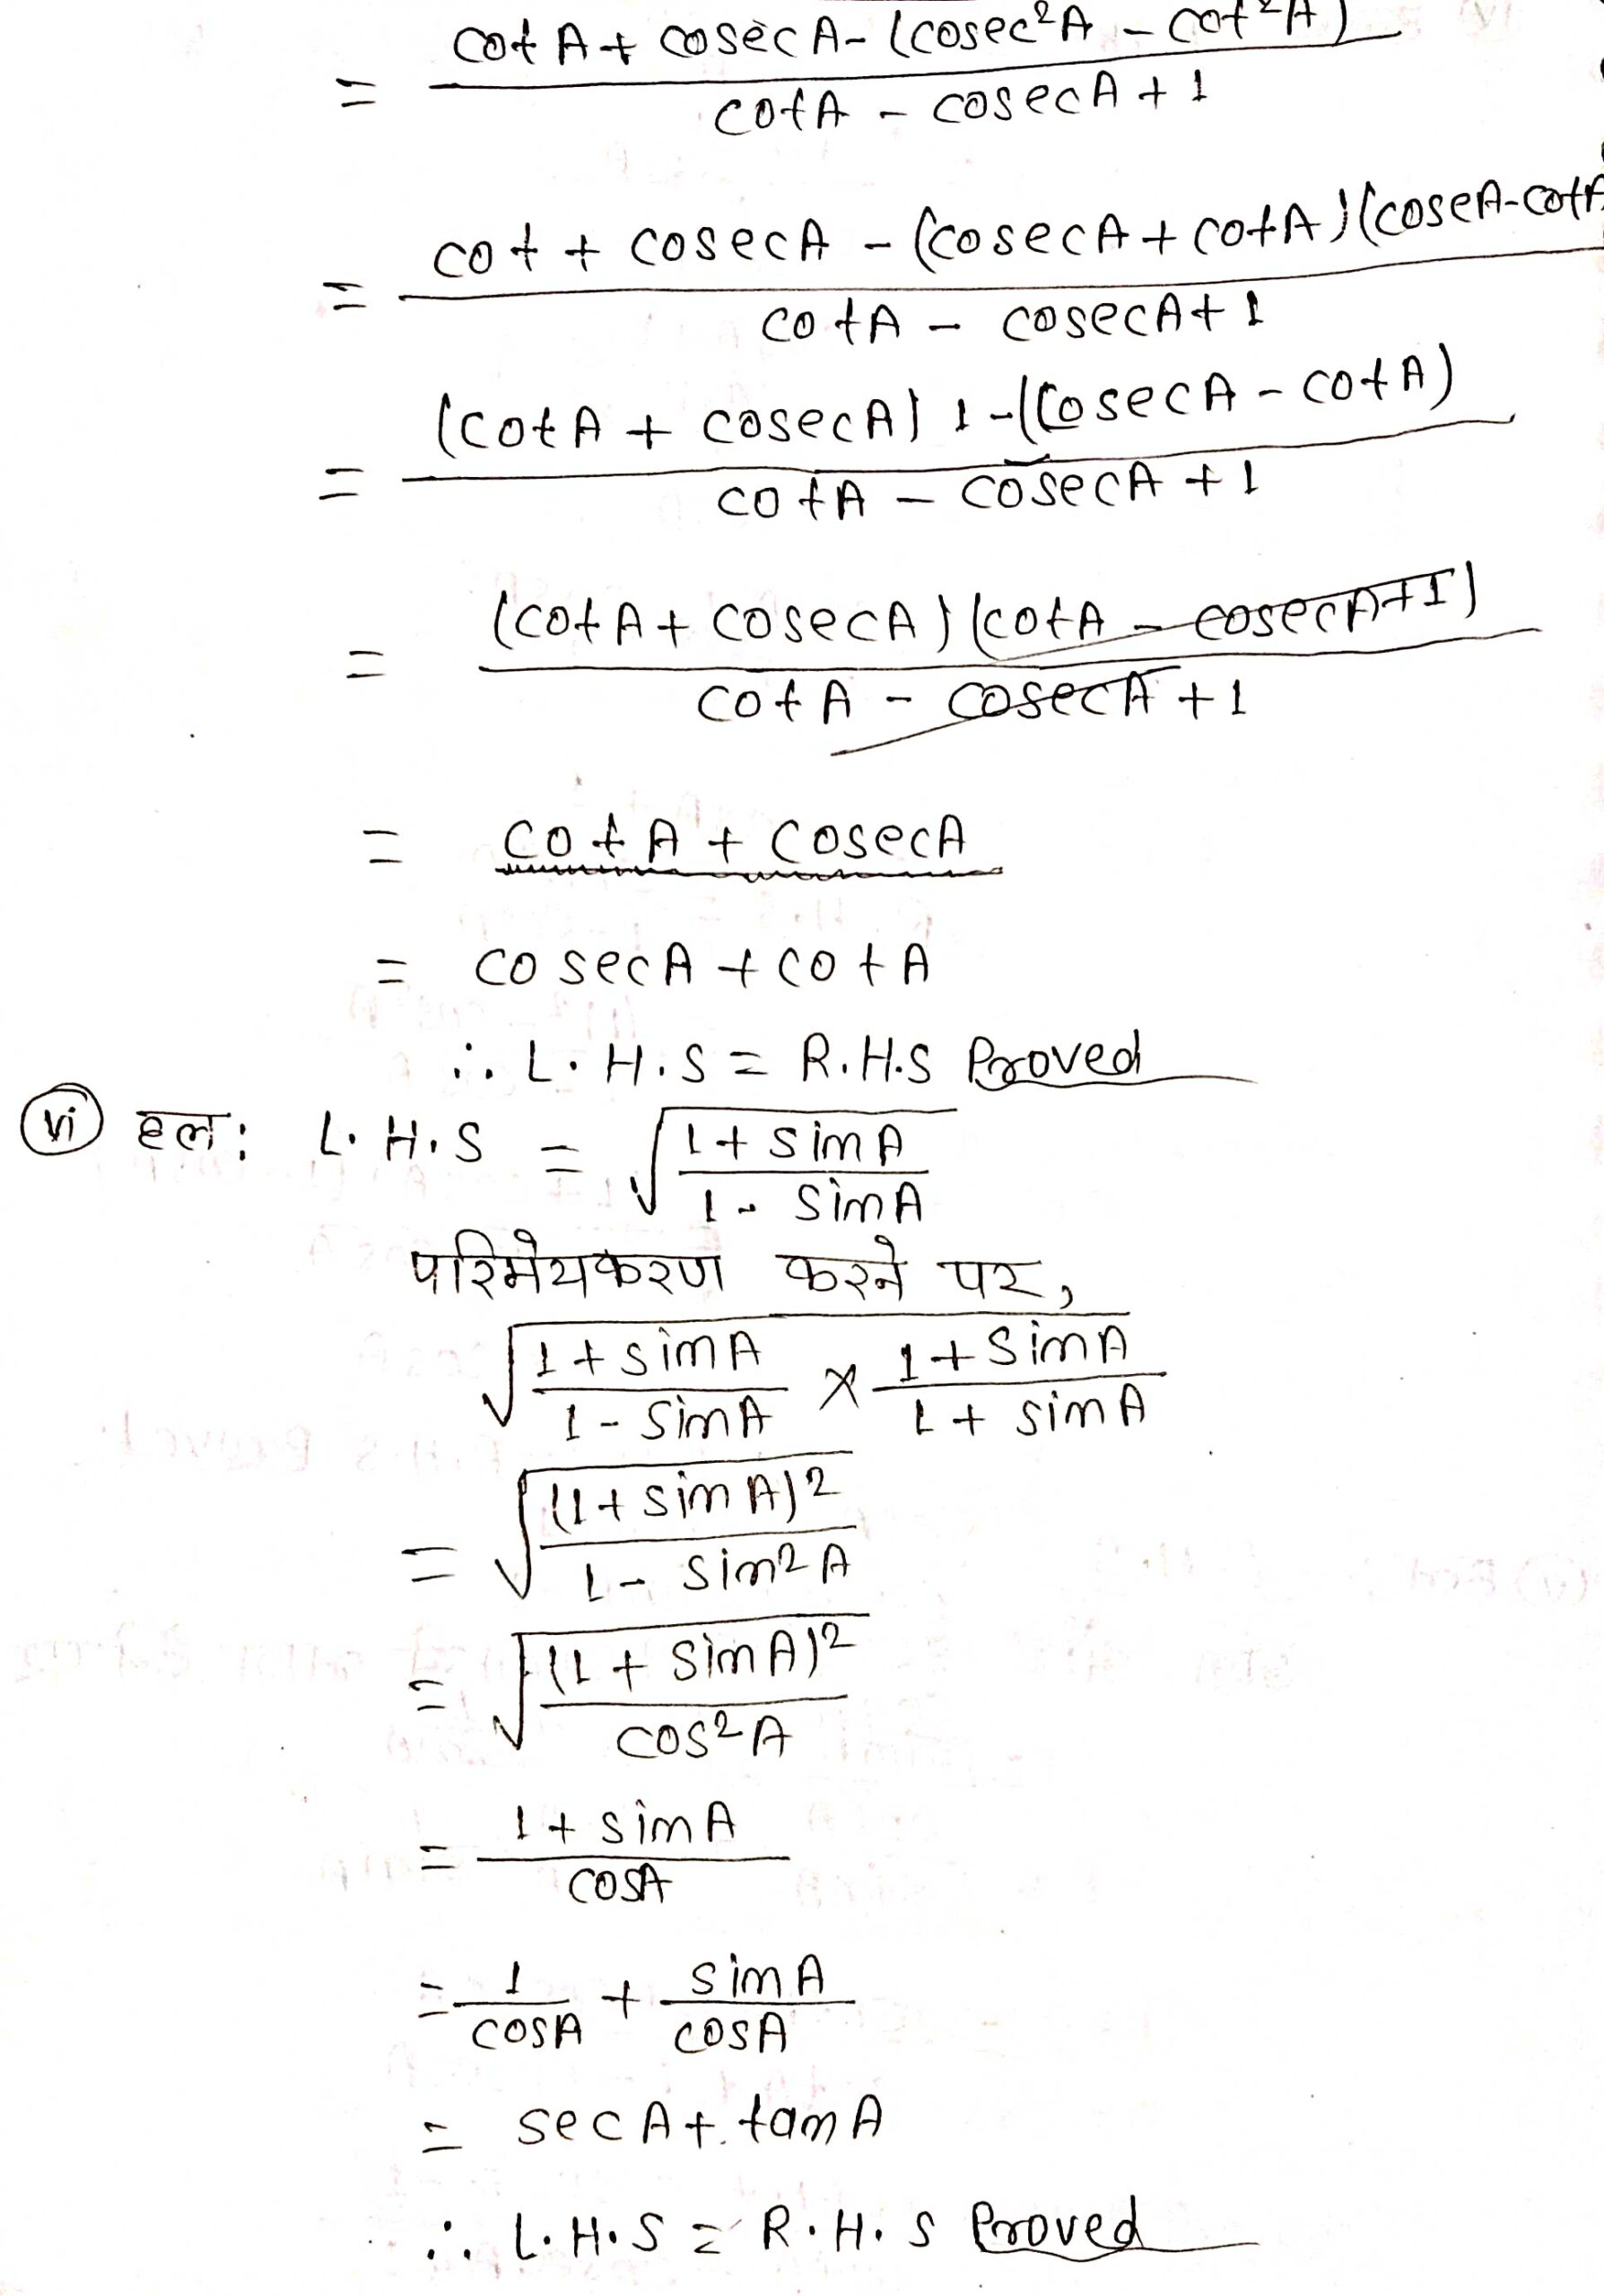 = cot A + cosec A - (cosec²A - cot²A) / cotA - cosecA + 1
= cot + cosecA - (cosecA + cotA)(coseA-cotA / cotA - cosecA + 1
= (cotA + cosecA) 1 - (cosecA - cotA) / cotA - cosecA + 1
= (cotA + cosecA)(cotA - cosecA+1) / cotA - cosecA + 1
= cotA + cosecA
= cosecA + cotA
∴ L.H.S = R.H.S Proved
(vi) हल: L.H.S = √(1 + sinA / 1 - sinA)
परिमेयकरण करने पर,
√(1 + sinA / 1 - sinA × 1 + sinA / 1 + sinA)
= √((1 + sinA)² / 1 - sin²A)
= √((1 + sinA)² / cos²A)
= 1 + sinA / cosA
= 1 / cosA + sinA / cosA
= secA + tanA
∴ L.H.S = R.H.S Proved